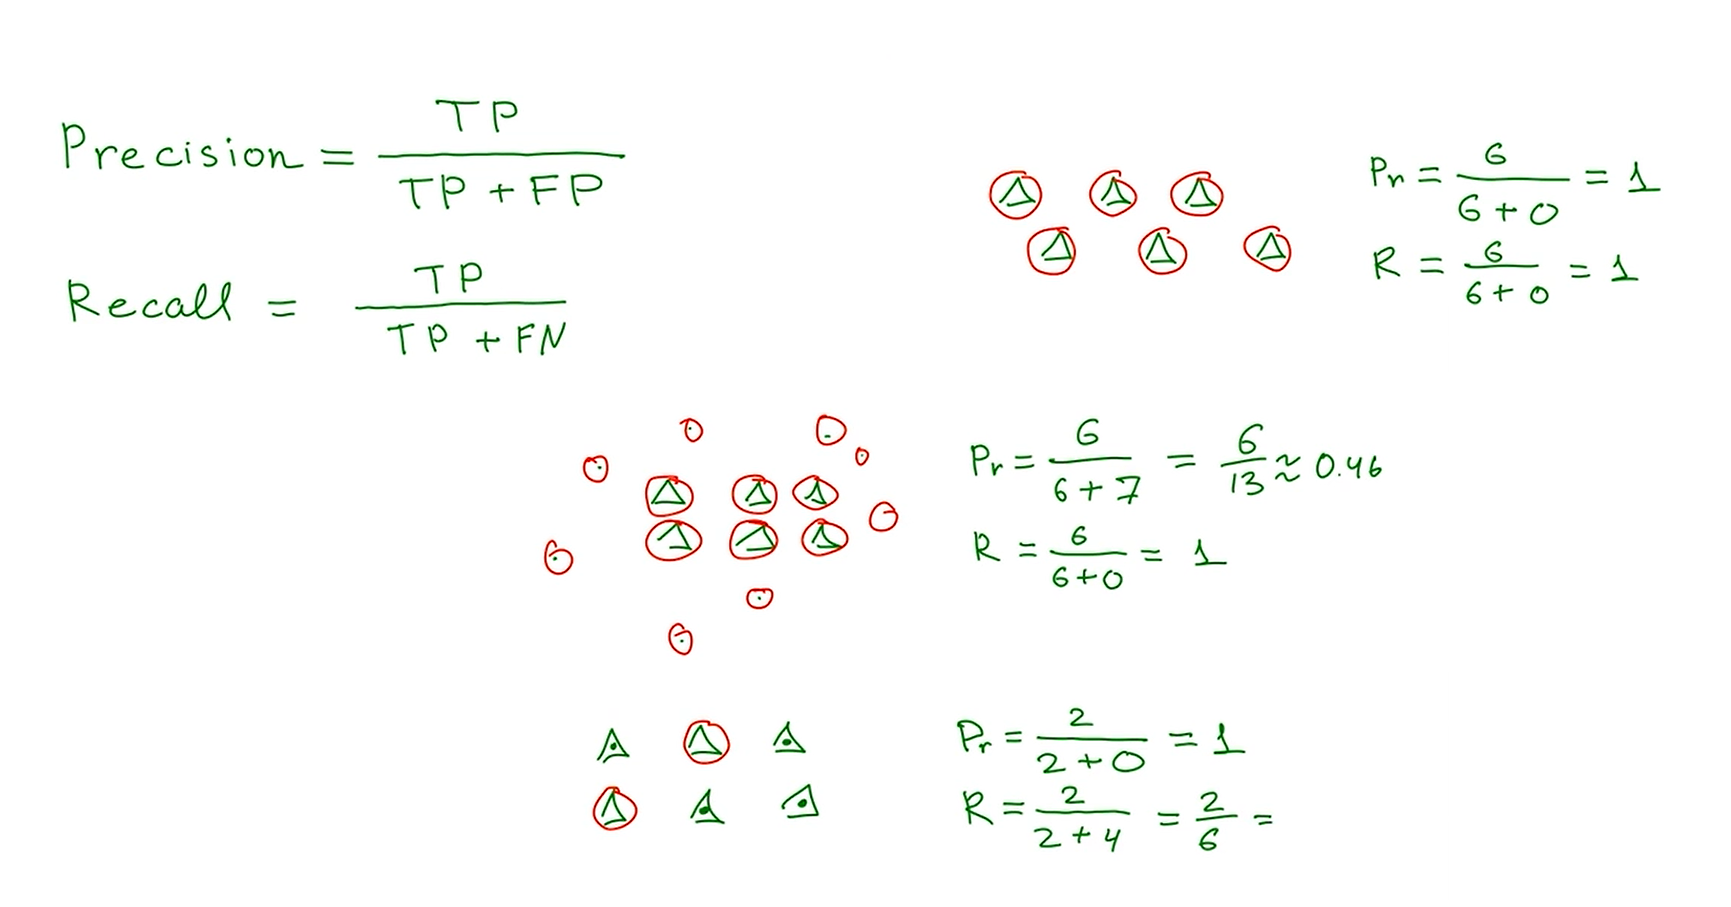 Precision = TP / TP + FP
Recall = TP / TP + FN
Pr = 6 / 6 + 0 = 1
R = 6 / 6 + 0 = 1
Pr = 6 / 6 + 7 = 6 / 13 ≈ 0.46
R = 6 / 6 + 0 = 1
Pr = 2 / 2 + 0 = 1
R = 2 / 2 + 4 = 2 / 6 =